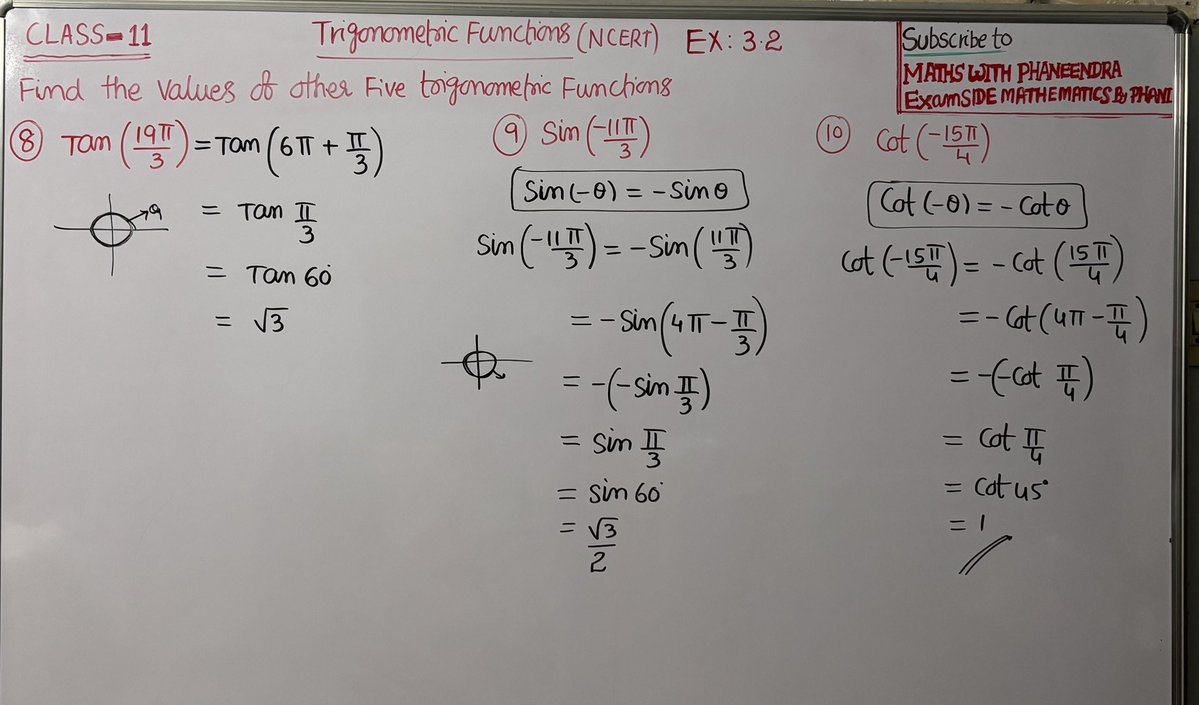 CLASS-11
Trigonometric Functions (NCERT) EX: 3.2
Subscribe to
MATHS WITH PHANEENDRA
ExamSIDE MATHEMATICS By PHANI
Find the values of other Five trigonometric Functions
⑧ Tan (19π/3) = Tan (6π + π/3)
a
= Tan π/3
= Tan 60°
= √3
⑨ Sin (-11π/3)
Sin(-θ) = -Sinθ
Sin (-11π/3) = -Sin (11π/3)
= -Sin (4π - π/3)
= -(-Sin π/3)
= Sin π/3
= Sin 60°
= √3/2
⑩ Cot (-15π/4)
Cot (-θ) = - Cotθ
Cot (-15π/4) = - Cot (15π/4)
= - Cot (4π - π/4)
= -(-Cot π/4)
= Cot π/4
= Cot 45°
= 1